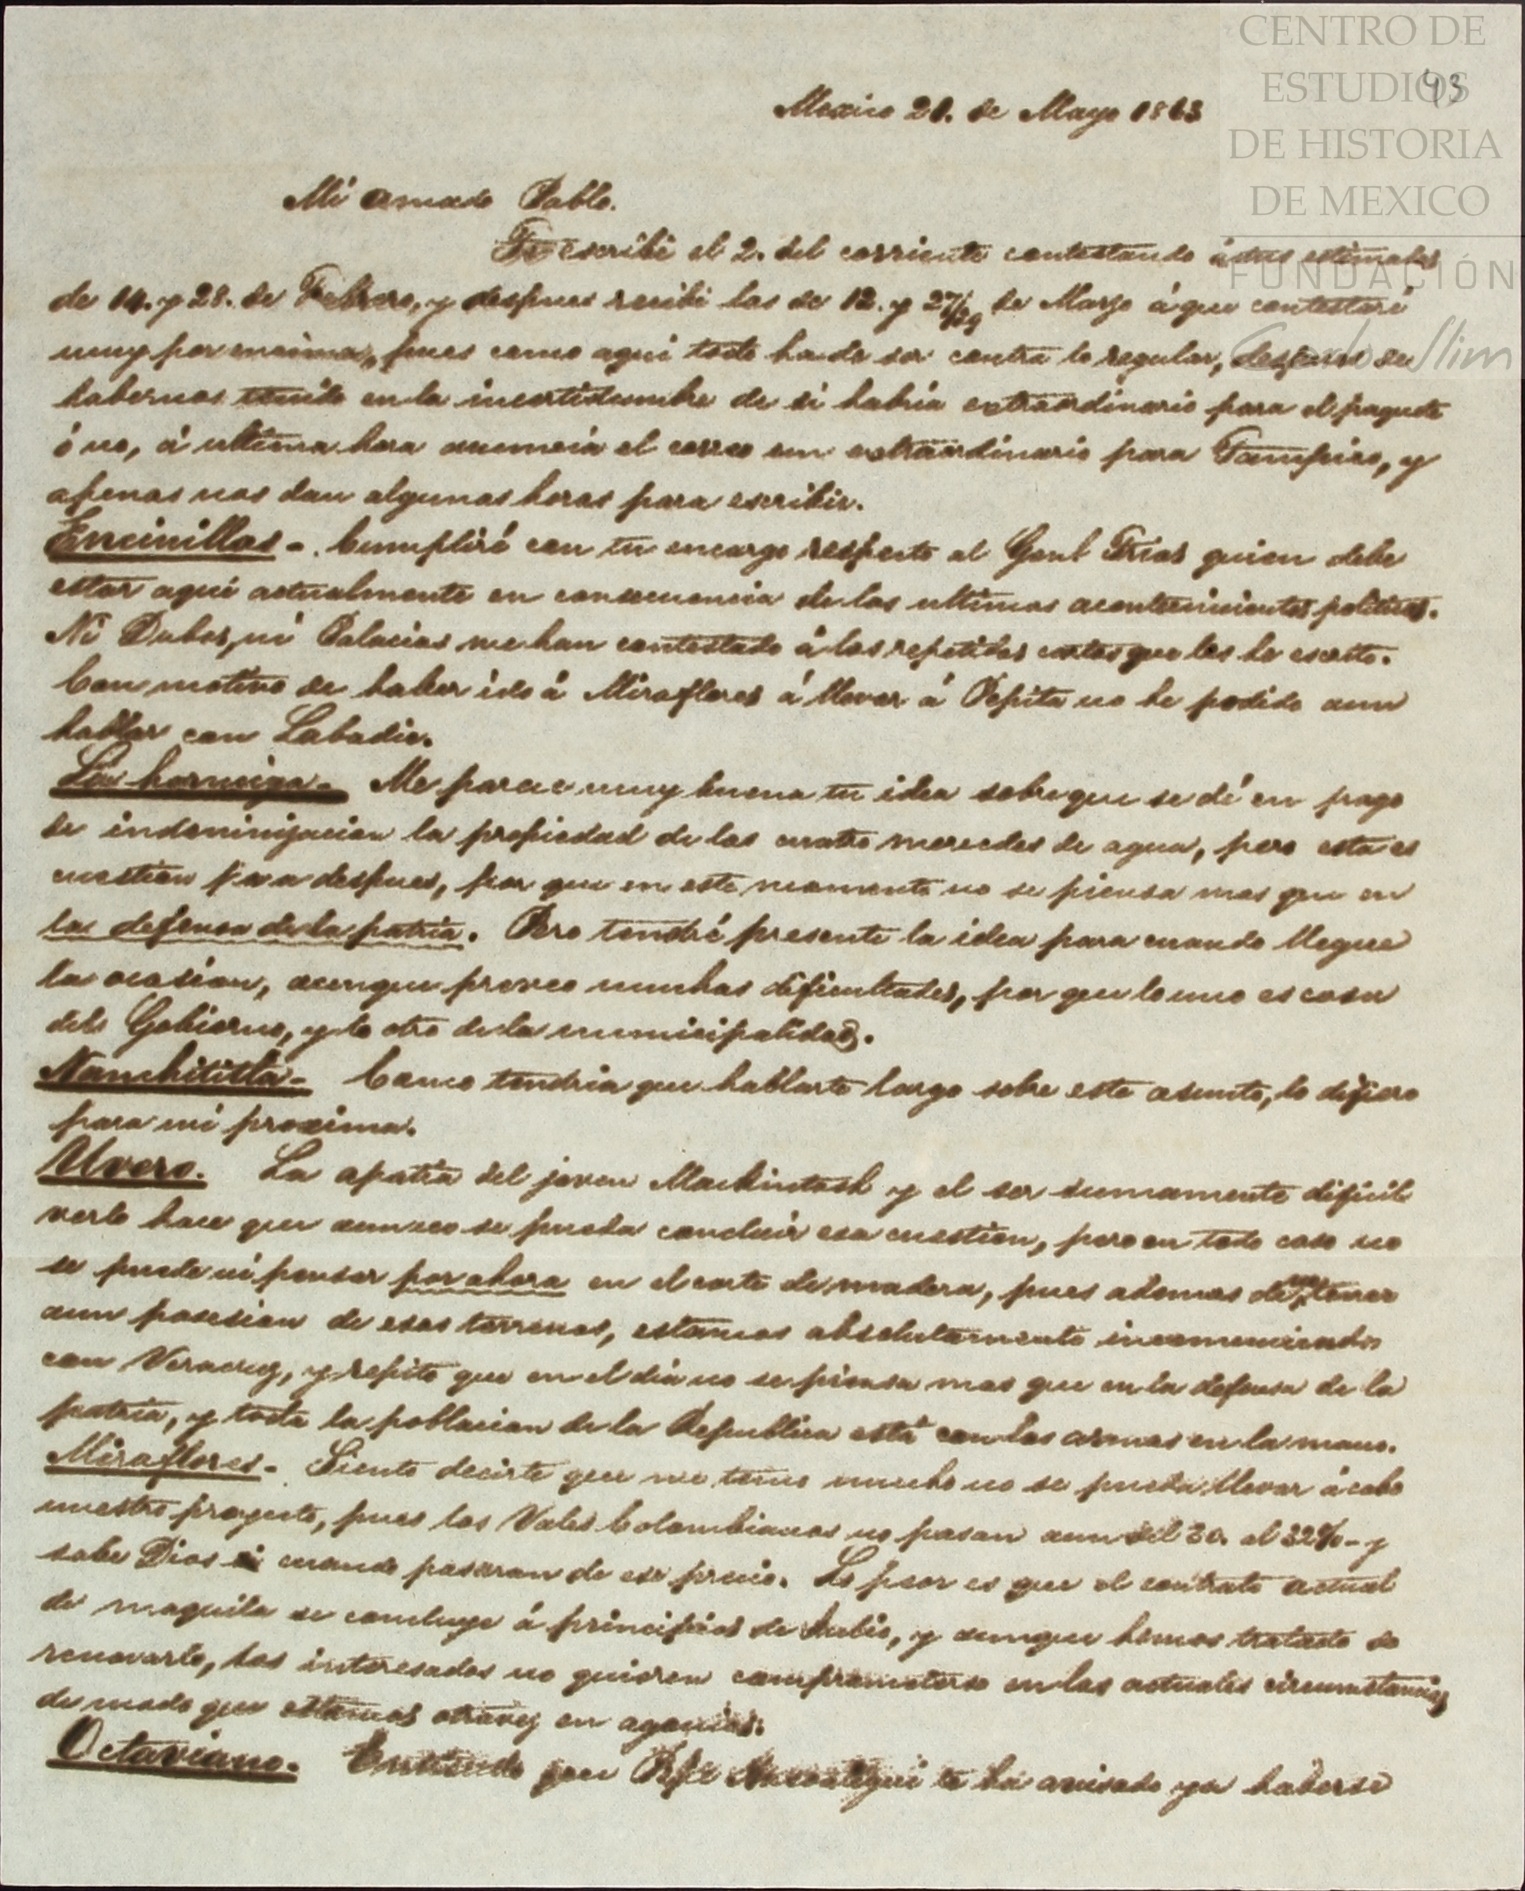 CENTRO DE
ESTUDIOS
DE HISTORIA
DE MEXICO
FUNDACIÓN
Carlos Slim
43
Mexico 21. de Mayo 1863
Mi amado Pablo.
Te escribí el 2. del corriente contestando á tus estimadas
de 14. y 28. de Febrero, y despues recibí las de 12. y 27/29 de Marzo á que contestaré
muy por encima, pues como aqui todo ha de ser contra lo regular, despues de
habernos tenido en la incertidumbre de si habria extraordinario para el paquete
ó no, á ultima hora anuncia el correo un extraordinario para Tampico, y
apenas nos dan algunas horas para escribir.
Encinillas - Cumpliré con tu encargo respecto al Genl Frias quien debe
estar aqui actualmente en consecuencia de los ultimos acontecimientos politicos.
Ni Dubos, ni Palacios me han contestado á las repetidas cartas que les he escrito.
Con motivo de haber ido á Miraflores á llevar á Pepita no he podido aun
hablar con Labadie.
La hormiga - Me parece muy buena tu idea sobre que se dé en pago
de indeminizacion la propiedad de las cuatro mercedes de agua, pero esta es
cuestion para despues, por que en este momento no se piensa mas que en
la defensa de la patria. Pero tendré presente la idea para cuando llegue
la ocasion, aunque preveo muchas dificultades, por que lo uno es cosa
del Gobierno, y lo otro de la municipalidad.
Nanchititla - Como tendria que hablarte largo sobre este asunto, lo difiero
para mi proxima.
Uvero. La apatia del joven Mackintosh y el ser sumamente dificil
verlo hace que aun no se pueda concluir esa cuestion, pero en todo caso no
se puede ni pensar por ahora en el corte de madera, pues ademas de no tener
aun posesion de esos terrenos, estamos absolutamente incomunicados
con Veracruz, y repito que en el dia no se piensa mas que en la defensa de la
patria, y toda la poblacion de la Republica está con las armas en la mano.
Miraflores - Siento decirte que me temo mucho no se pueda llevar á cabo
nuestro proyecto, pues los Vales Colombianos no pasan aun del 30. al 32% - y
sabe Dios cuando pasaran de ese precio. Lo peor es que el contrato actual
de maquila se concluye á principios de Julio, y aunque hemos tratado de
renovarlo, los interesados no quieren comprometerse en las actuales circunstancias,
de modo que estamos otravez en agonias.
Octaviano. Entiendo que Pepe Ansoategui te ha avisado ya haberse